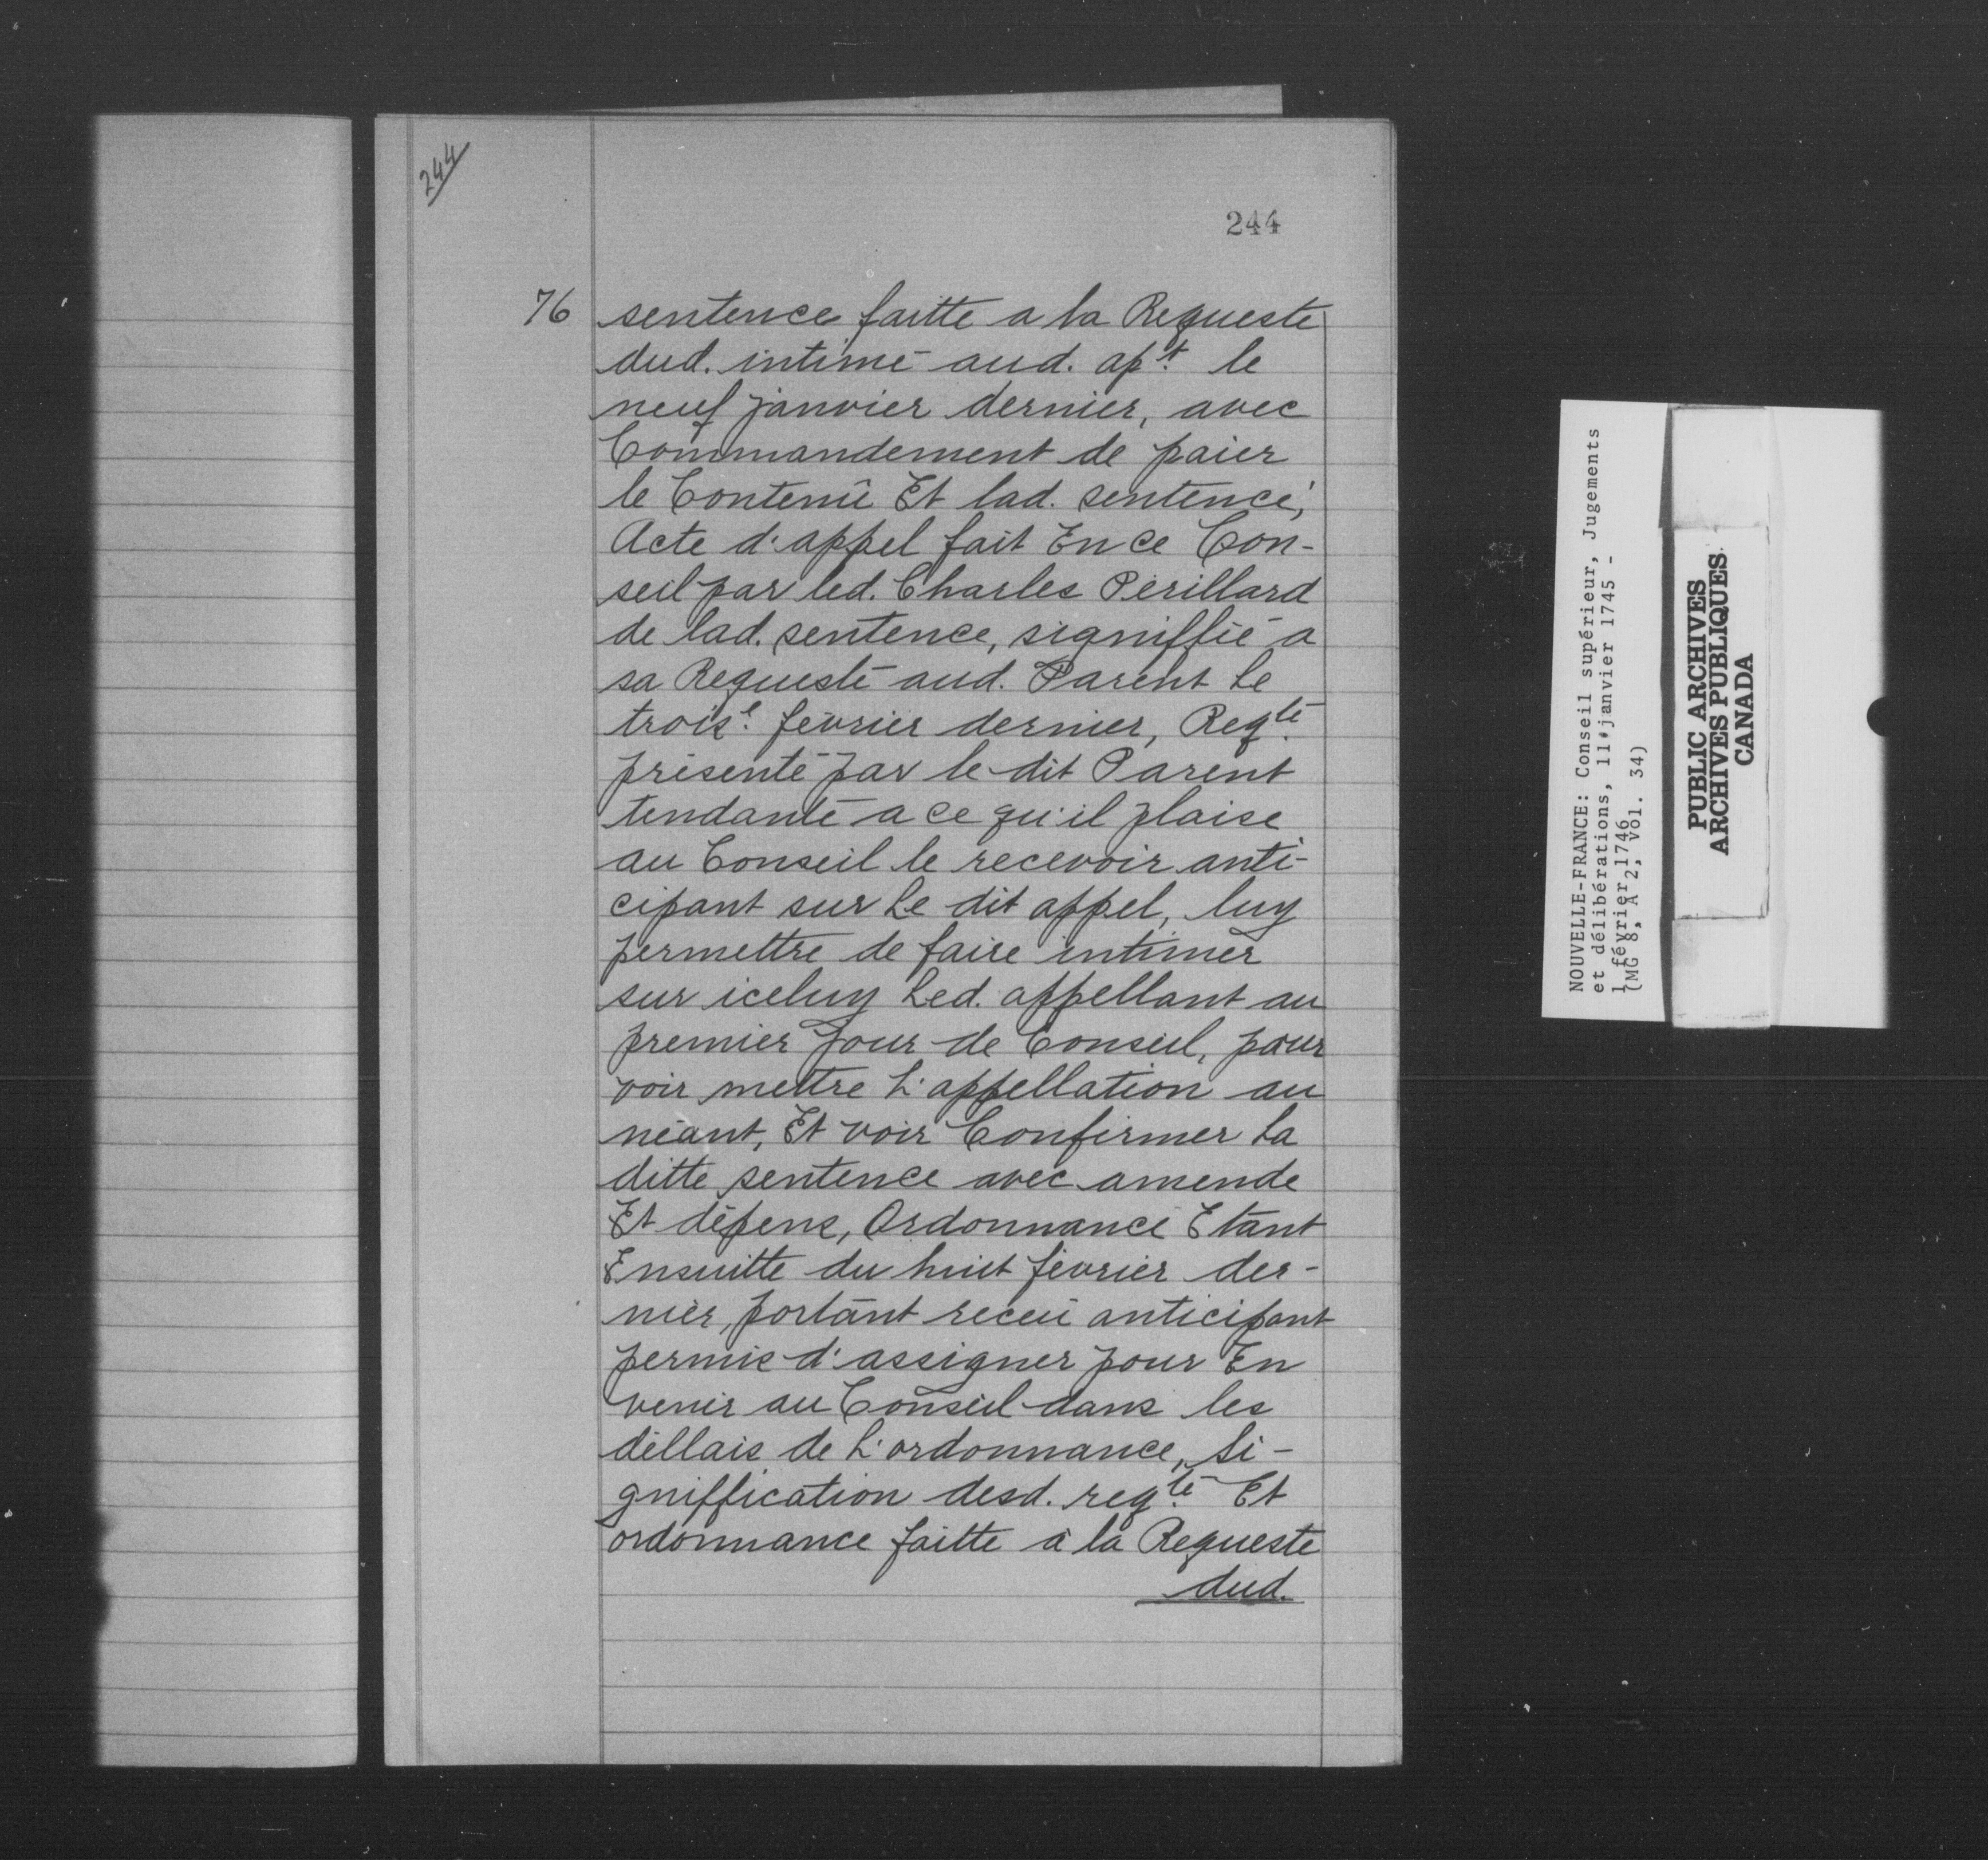 244
244
76 sentence faitte a la Requeste
dud. intimé aud. apt. le
neuf janvier dernier, avec
Commandement de paier
le Contenû Et lad. sentence,
Acte d'appel fait En ce Con-
seil par led. Charles Perillard
de lad. sentence, signiffié a
sa Requeste aud. Parent Le
troise. février dernier, Reqte.
présenté par le dit Parent
tendante a ce qu'il plaise
au Conseil le recevoir anti-
cipant sur Le dit appel, luy
permettre de faire intimer
sur iceluy Led. appellant au
premier jour de Conseil, pour
voir mettre L'appellation au
néant, Et voir Confirmer La
ditte sentence avec amende
Et dépens, Ordonnance Etant
Ensuitte du huit février der-
nier, portant receu anticipant
permis d'assigner pour En
venir au Conseil dans les
déllais de L'ordonnance, Si-
gniffication desd. reqte. Et
ordonnance faitte à la Requeste
dud.
NOUVELLE-FRANCE: Conseil supérieur, Jugements
et délibérations, 11 janvier 1745 -
1 février 1746
(MG 8, A 2, vol. 34)
PUBLIC ARCHIVES
ARCHIVES PUBLIQUES
CANADA